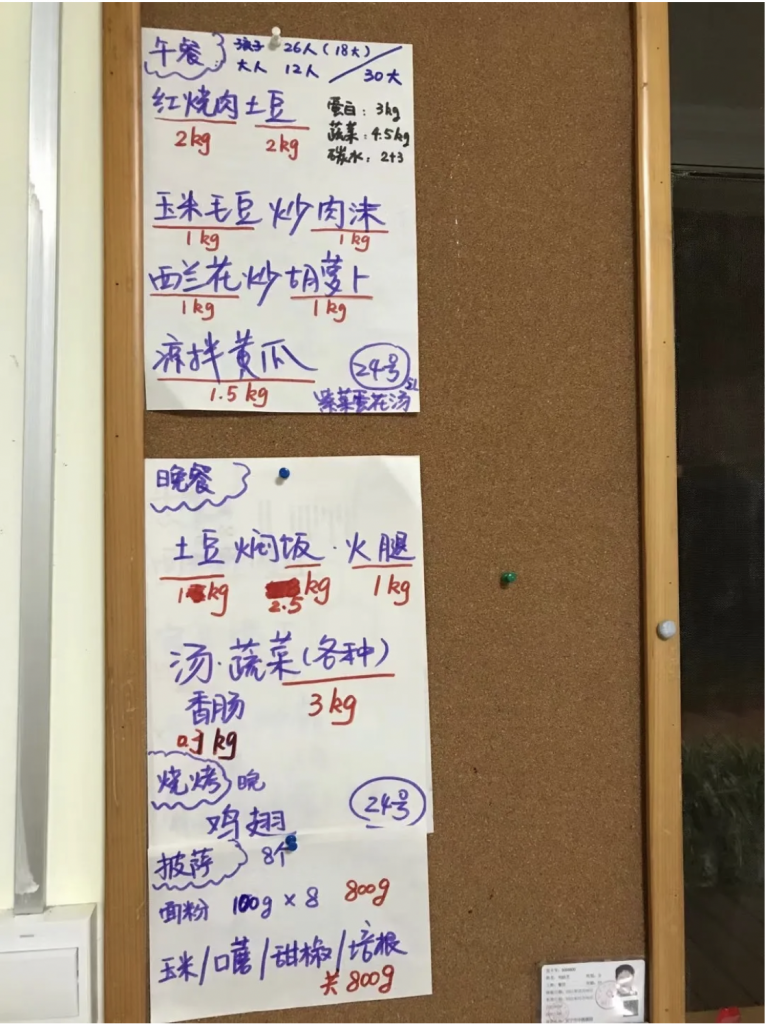 午餐 孩子 26人(18大)
大人 12人 / 30大
红烧肉土豆
2kg 2kg
蛋白: 3kg
蔬菜: 4.5kg
碳水: 2+3
玉米毛豆炒肉沫
1kg 1kg
西兰花炒胡萝卜
1kg 1kg
凉拌黄瓜
1.5kg
24号
5L
紫菜蛋花汤
晚餐
土豆焖饭·火腿
1kg 2.5kg 1kg
汤·蔬菜(各种)
香肠 3kg
kg
烧烤 晚
24号
鸡翅
披萨 8个
面粉 100g×8 800g
玉米/口蘑/甜椒/培根
共800g